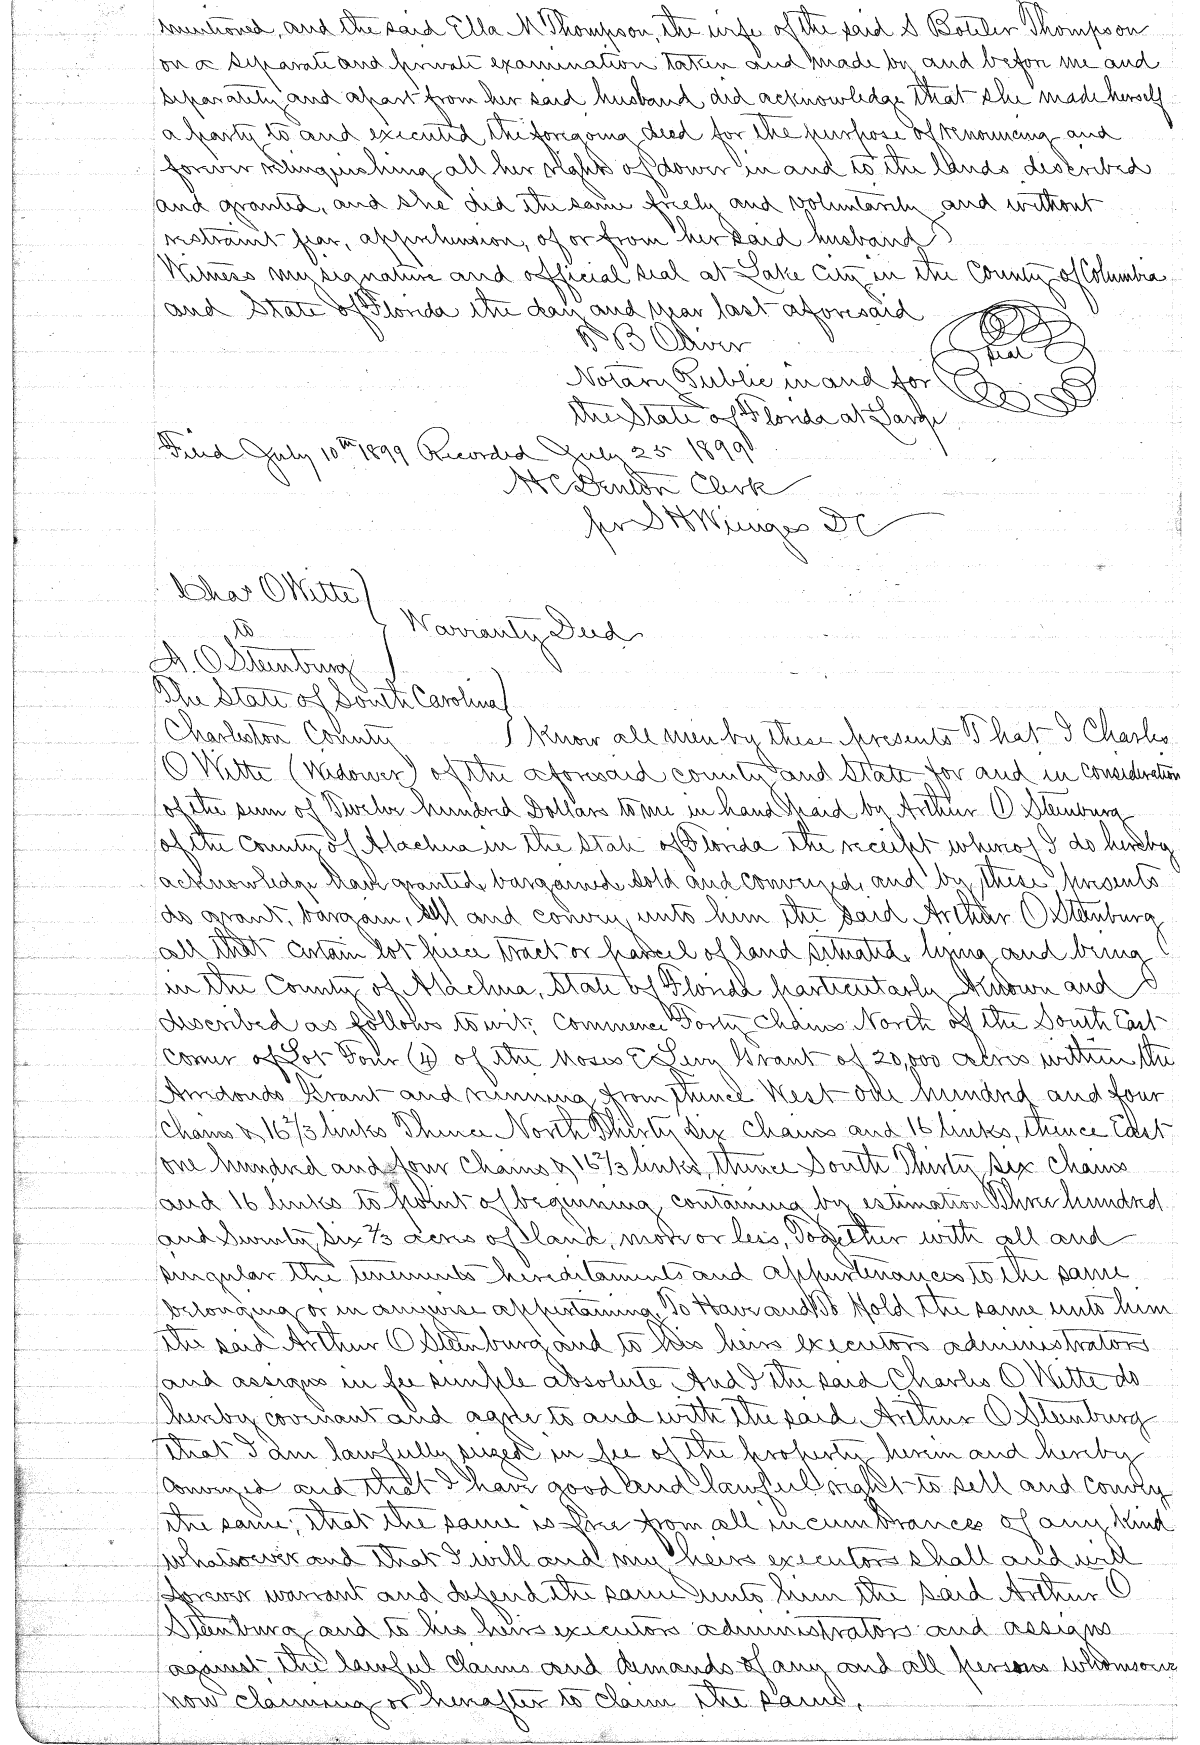 mentioned, and the said Ella M Thompson, the wife of the said S Boteler Thompson
on a separate and private examination taken and made by and before me and
separately and apart from her said husband did acknowledge that she made herself
a party to and executed the foregoing deed for the purpose of renouncing and
forever relinquishing all her rights of dower in and to the lands described
and granted, and she did the same freely and voluntarily and without
restraint fear, apprehension, of or from her said husband
Witness my signature and official seal at Lake City in the County of Columbia
and State of Florida the day and year last aforesaid
B Oliver
Seal
Notary Public in and for
the State of Florida at Large
Filed July 10th 1899 Recorded July 25 1899
H C Denton Clerk
per S H Wienges DC
Chas O Witte
to
A. O Steenburg
Warranty Deed
The State of South Carolina
Charleston County Know all men by these presents That I Charles
O Witte (Widower) of the aforesaid county and State for and in consideration
of the sum of Twelve hundred Dollars to me in hand paid by Arthur O Steenburg
of the County of Alachua in the State of Florida the receipt whereof I do hereby
acknowledge have granted, bargained, sold and conveyed, and by these presents
do grant, bargain, sell and convey unto him the said Arthur O Steenburg
all that certain lot piece tract or parcel of land situated, lying and being
in the County of Alachua, State of Florida particularly known and
described as follows to wit; Commence Forty Chains North of the South East
corner of Lot Four (4) of the Moses E Levy Grant of 20,000 acres within the
Arredondo Grant and running from thence West one hundred and four
chains & 16 2/3 links Thence North Thirty six Chains and 16 links, thence East
one hundred and four Chains & 16 2/3 links, thence South Thirty six chains
and 16 links to point of beginning containing by estimation Three hundred
and Seventy six 2/3 acres of land, more or less, Together with all and
singular the tenements hereditaments and appurtenances to the same
belonging or in anywise appertaining. To Have and To Hold the same unto him
the said Arthur O Steenburg and to his heirs executors administrators
and assigns in fee simple absolute And I the said Charles O Witte do
hereby covenant and agree to and with the said Arthur O Steenburg
that I am lawfully siezed in fee of the property herein and hereby
conveyed and that I have good and lawful right to sell and convey
the same; that the same is free from all incumbrances of any kind
whatsoever and that I will and my heirs executors shall and will
forever warrant and defend the same unto him the said Arthur O
Steenburg and to his heirs executors administrators and assigns
against the lawful claims and demands of any and all persons whomsoever
now claiming or hereafter to claim the same.